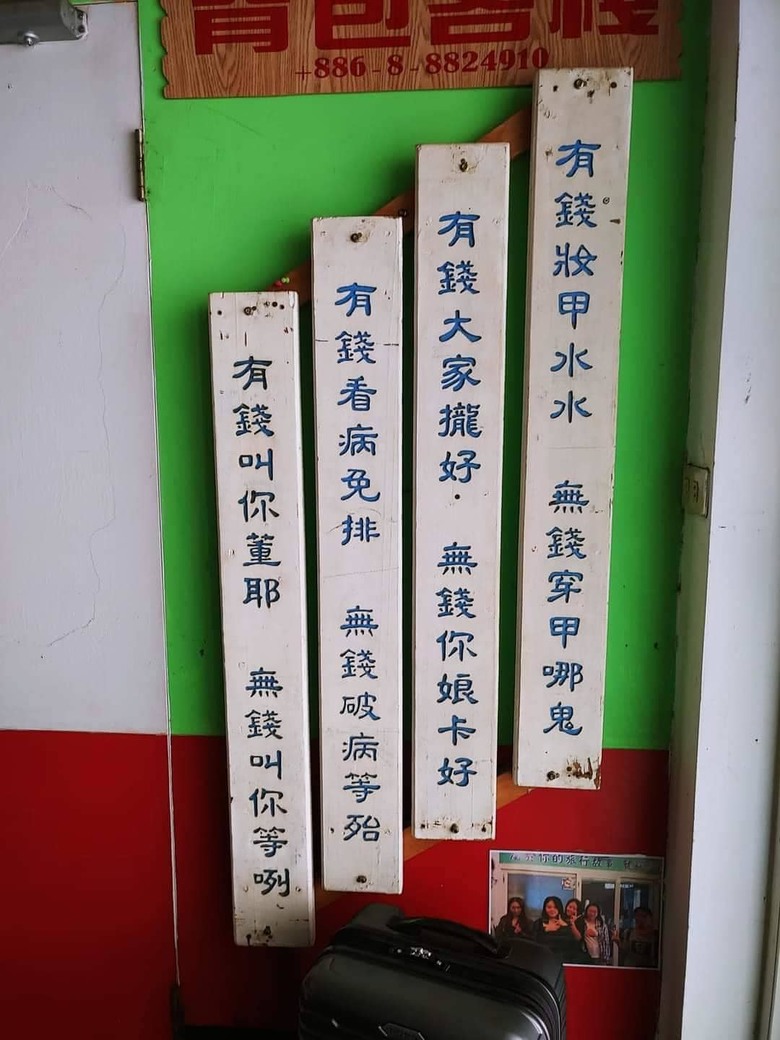 背包客棧
+886-8-8824910
有錢妝甲水水 無錢穿甲哪鬼
有錢大家攏好 無錢你娘卡好
有錢看病免排 無錢破病等殆
有錢叫你董耶 無錢叫你等咧
你的旅行故事